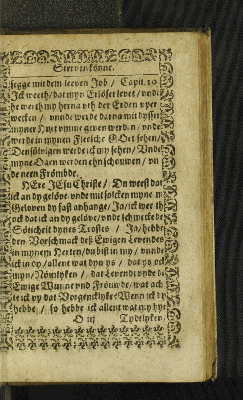 Sterven könne.
segge mit dem leeven Job / Capit. 19
Ick weeth / dat myn Erlöser levet / unde
he werth my herna uth der Erden uper
wecken / unde werde darna mit dysser
myner Hut umme geven werden / unde
werde in mynem Fleische Godt sehen /
Densülvigen werde ick my sehen / Unde
myne Ogen werden ehn schouwen / un
de neen Frömbde.
HEre JEsu Christe / Du weest dat
ick an dy gelöve unde mit solcken myne m
Geloven dy fast anhange / Ja / ick weeth
ock dat ick an dy gelöve / unde ick smecke de
Söticheit dynes Trostes / Ja / hebbe
den Vorschmack deß Ewigen Levendes
in mynem Herten / du bist in my / unde
ick in dy / allent wat dyn ys / dat ys ock
myn / Nömlyken / dat Levendt unde de
Ewige Wunne und Fröuwde / wat ach
te ick up dat Vorgencklyke: Wenn ick dy
hebbe / so hebbe ick allent wat my hyr
O iij Tydtlyken,